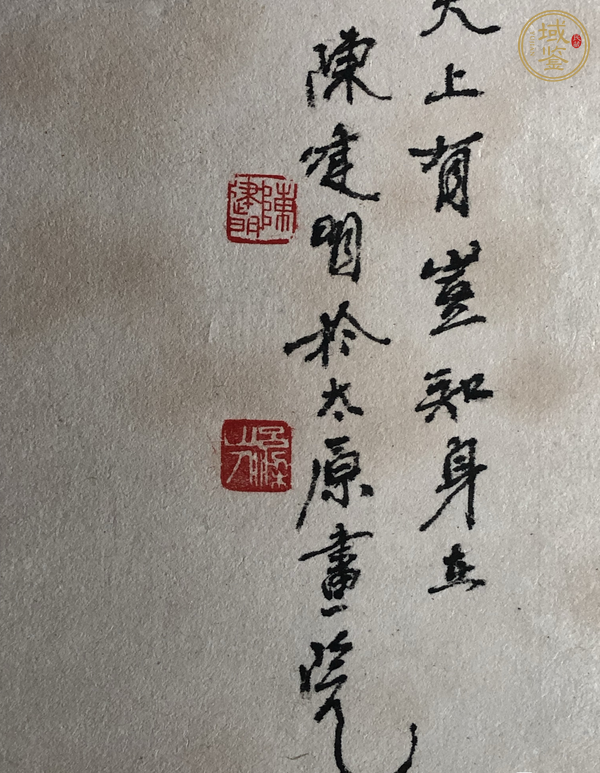 天上有豈知身在
陳建明於太原畫院
陳建明
域鉴